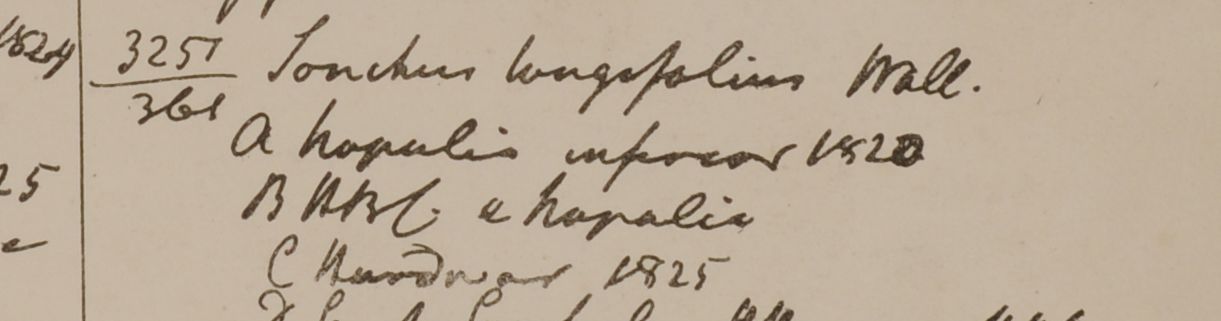 1824
3251 Sonchus longifolius Wall.
361
A Napalia inferior 1820
25 B HBC e Napalia
C Hurdwar 1825